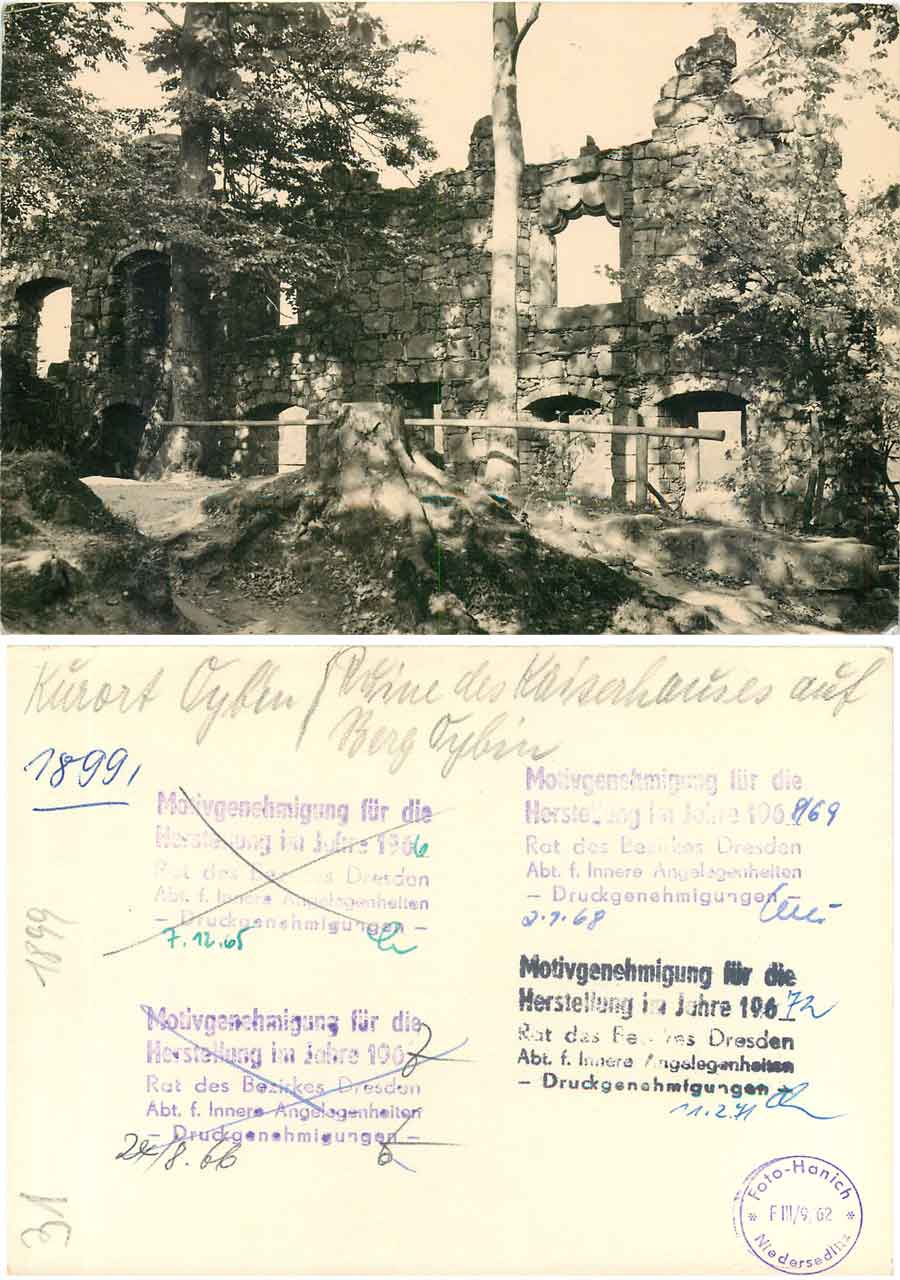 Kurort Oybin / Ruine des Kaiserhauses auf
Berg Oybin
1899,
Motivgenehmigung für die
Herstellung im Jahre 1966
Rat des Bezirkes Dresden
Abt. f. Innere Angelegenheiten
– Druckgenehmigungen –
7.12.65
Motivgenehmigung für die
Herstellung im Jahre 1968/69
Rat des Bezirkes Dresden
Abt. f. Innere Angelegenheiten
– Druckgenehmigungen –
2.7.68
1899
Motivgenehmigung für die
Herstellung im Jahre 1967
Rat des Bezirkes Dresden
Abt. f. Innere Angelegenheiten
– Druckgenehmigungen –
24/8.66
Motivgenehmigung für die
Herstellung im Jahre 19672
Rat des Bezirkes Dresden
Abt. f. Innere Angelegenheiten
– Druckgenehmigungen –
11.2.71
31
Foto-Hanich
* F III/9/62 *
Niedersedlitz